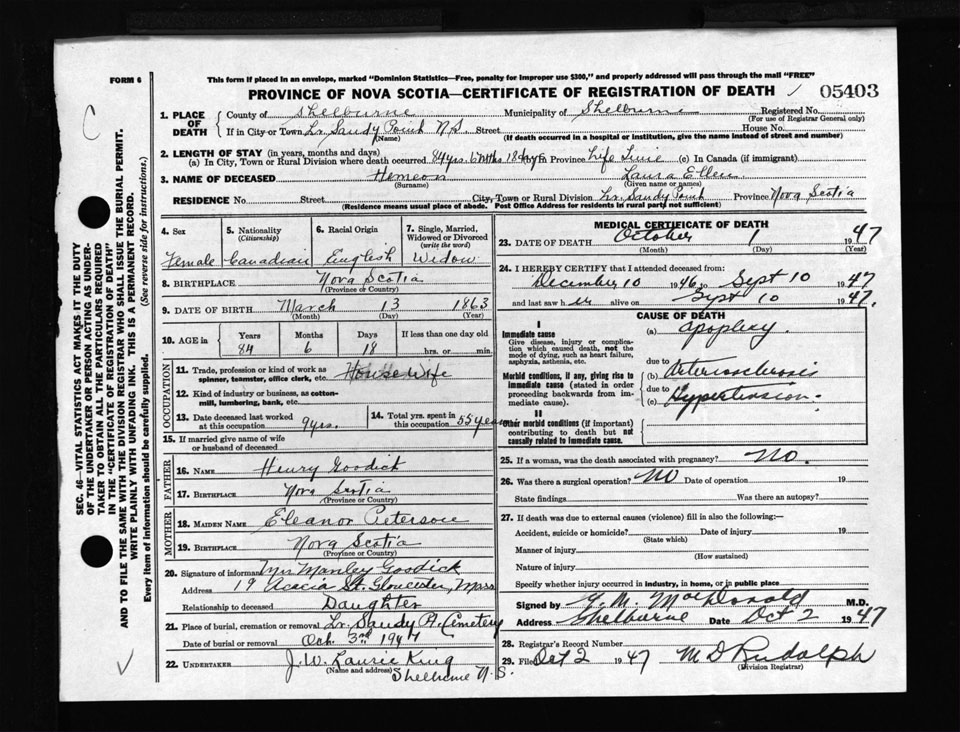 FORM 6
This form if placed in an envelope, marked "Dominion Statistics—Free, penalty for improper use $300," and properly addressed will pass through the mail "FREE"
PROVINCE OF NOVA SCOTIA—CERTIFICATE OF REGISTRATION OF DEATH / 05403
1. PLACE OF DEATH
County of Shelburne Municipality of Shelburne Registered No.
(For use of Registrar General only)
If in City or Town Lr. Sandy Point N.S Street House No.
(Name) (If death occurred in a hospital or institution, give the name instead of street and number)
2. LENGTH OF STAY (in years, months and days)
(a) In City, Town or Rural Division where death occurred 84 yrs. 6 mths 18 days In Province Life Time (c) In Canada (if immigrant)
3. NAME OF DECEASED Hemeon Laura Ellen
(Surname) (Given name or names)
RESIDENCE No. Street City, Town or Rural Division Lr. Sandy Point Province Nova Scotia
(Residence means usual place of abode. Post Office Address for residents in rural parts not sufficient)
4. Sex Female
5. Nationality (Citizenship) Canadian
6. Racial Origin English
7. Single, Married, Widowed or Divorced (write the word) Widow
8. BIRTHPLACE Nova Scotia
(Province or Country)
9. DATE OF BIRTH March 13 1863
(Month) (Day) (Year)
10. AGE in Years Months Days If less than one day old
84 6 18 hrs. or min.
OCCUPATION
11. Trade, profession or kind of work as spinner, teamster, office clerk, etc. Housewife
12. Kind of industry or business, as cotton-mill, lumbering, bank, etc.
13. Date deceased last worked at this occupation 9 yrs.
14. Total yrs. spent in this occupation 55 years
15. If married give name of wife or husband of deceased
FATHER
16. NAME Henry Goodick
17. BIRTHPLACE Nova Scotia
(Province or Country)
MOTHER
18. MAIDEN NAME Eleanor Peterson
19. BIRTHPLACE Nova Scotia
(Province or Country)
20. Signature of informant Mrs Manley Goodick
Address 19 Acacia St. Gloucester, Mass
Relationship to deceased Daughter
21. Place of burial, cremation or removal Lr. Sandy Pt. Cemetery
Date of burial or removal Oct. 3rd 1947
22. UNDERTAKER J. W. Laurie King
(Name and address) Shelburne N. S.
MEDICAL CERTIFICATE OF DEATH
23. DATE OF DEATH October 1 1947
(Month) (Day) (Year)
24. I HEREBY CERTIFY that I attended deceased from:
December 10 1946 to Sept 10 1947
and last saw her alive on Sept 10 1947.
CAUSE OF DEATH
I
Immediate cause
Give disease, injury or complication which caused death, not the mode of dying, such as heart failure, asphyxia, asthenia, etc.
(a) Apoplexy.
due to
Morbid conditions, if any, giving rise to immediate cause (stated in order proceeding backwards from immediate cause).
(b) Arteriosclerosis
due to
(c) Hypertension.
II
Other morbid conditions (if important) contributing to death but not causally related to immediate cause.
25. If a woman, was the death associated with pregnancy? No.
26. Was there a surgical operation? No Date of operation 19
State findings Was there an autopsy?
27. If death was due to external causes (violence) fill in also the following:—
Accident, suicide or homicide? Date of injury 19
(State which)
Manner of injury
(How sustained)
Nature of injury
Specify whether injury occurred in industry, in home, or in public place
Signed by MacDonald M.D.
Address Shelburne Date Oct 2 1947
28. Registrar's Record Number
29. Filed Oct 2 1947 M D Rudolph
(Division Registrar)
SEC. 46—VITAL STATISTICS ACT MAKES IT THE DUTY
OF THE UNDERTAKER OR PERSON ACTING AS UNDER-
TAKER TO OBTAIN ALL THE PARTICULARS REQUIRED
IN THE "CERTIFICATE OF REGISTRATION OF DEATH"
AND TO FILE THE SAME WITH THE DIVISION REGISTRAR WHO SHALL ISSUE THE BURIAL PERMIT.
WRITE PLAINLY WITH UNFADING INK. THIS IS A PERMANENT RECORD.
Every item of information should be carefully supplied. (See reverse side for instructions.)